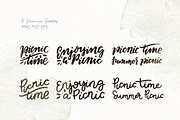 PNG PSD EPS
Picnic time
Enjoying a Picnic
picnic time summer picnic
Picnic time
Enjoying a Picnic
Picnic time Summer Picnic